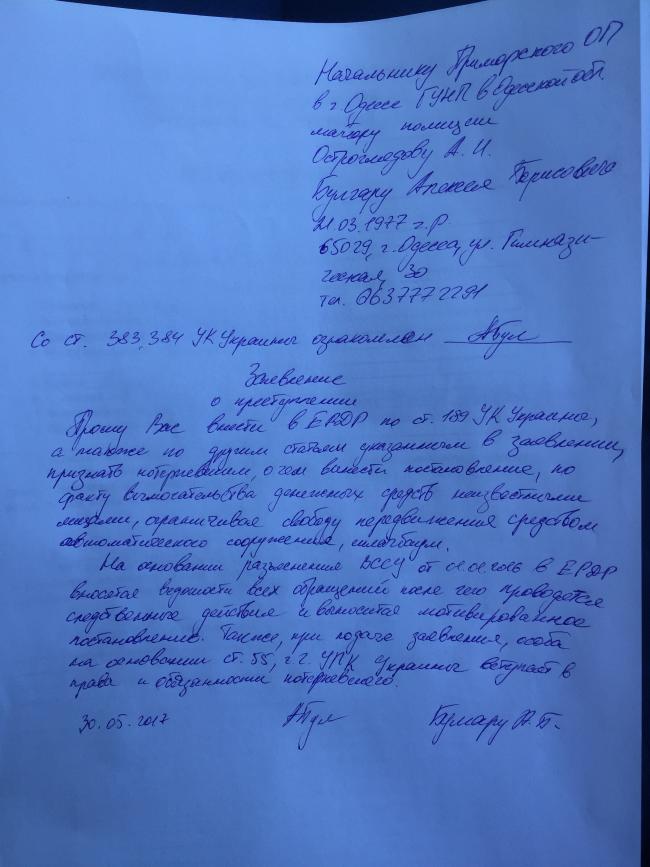 Начальнику Приморского ОП
в г. Одессе ГУНП в Одесской обл.
майору полиции
Остроглядову А. И.
Булгару Алексея Борисовича
21.03.1977 г.р.
65029, г. Одесса, ул. Гимнази-
ческая, 30
тел. 0637772291
Со ст. 383, 384 УК Украины ознакомлен
Заявление
о преступлении
Прошу Вас внести в ЕРДР по ст. 189 УК Украины,
а также по другим статьям указанным в заявлении,
признать потерпевшим, о чем вынести постановление, по
факту вымогательства денежных средств неизвестными
лицами, ограничивая свободу передвижения средством
автоматического сооружения, шлагбаум.
На основании разъяснения ВССУ от в ЕРДР
вносятся ведомости всех обращений после чего проводятся
следственные действия и выносится мотивированное
постановление. Также, при подаче заявления, особа
на основании ст. 55, ч. 2. УПК Украины вступает в
права и обязанности потерпевшего.
30.05.2017 Булгару А. Б.